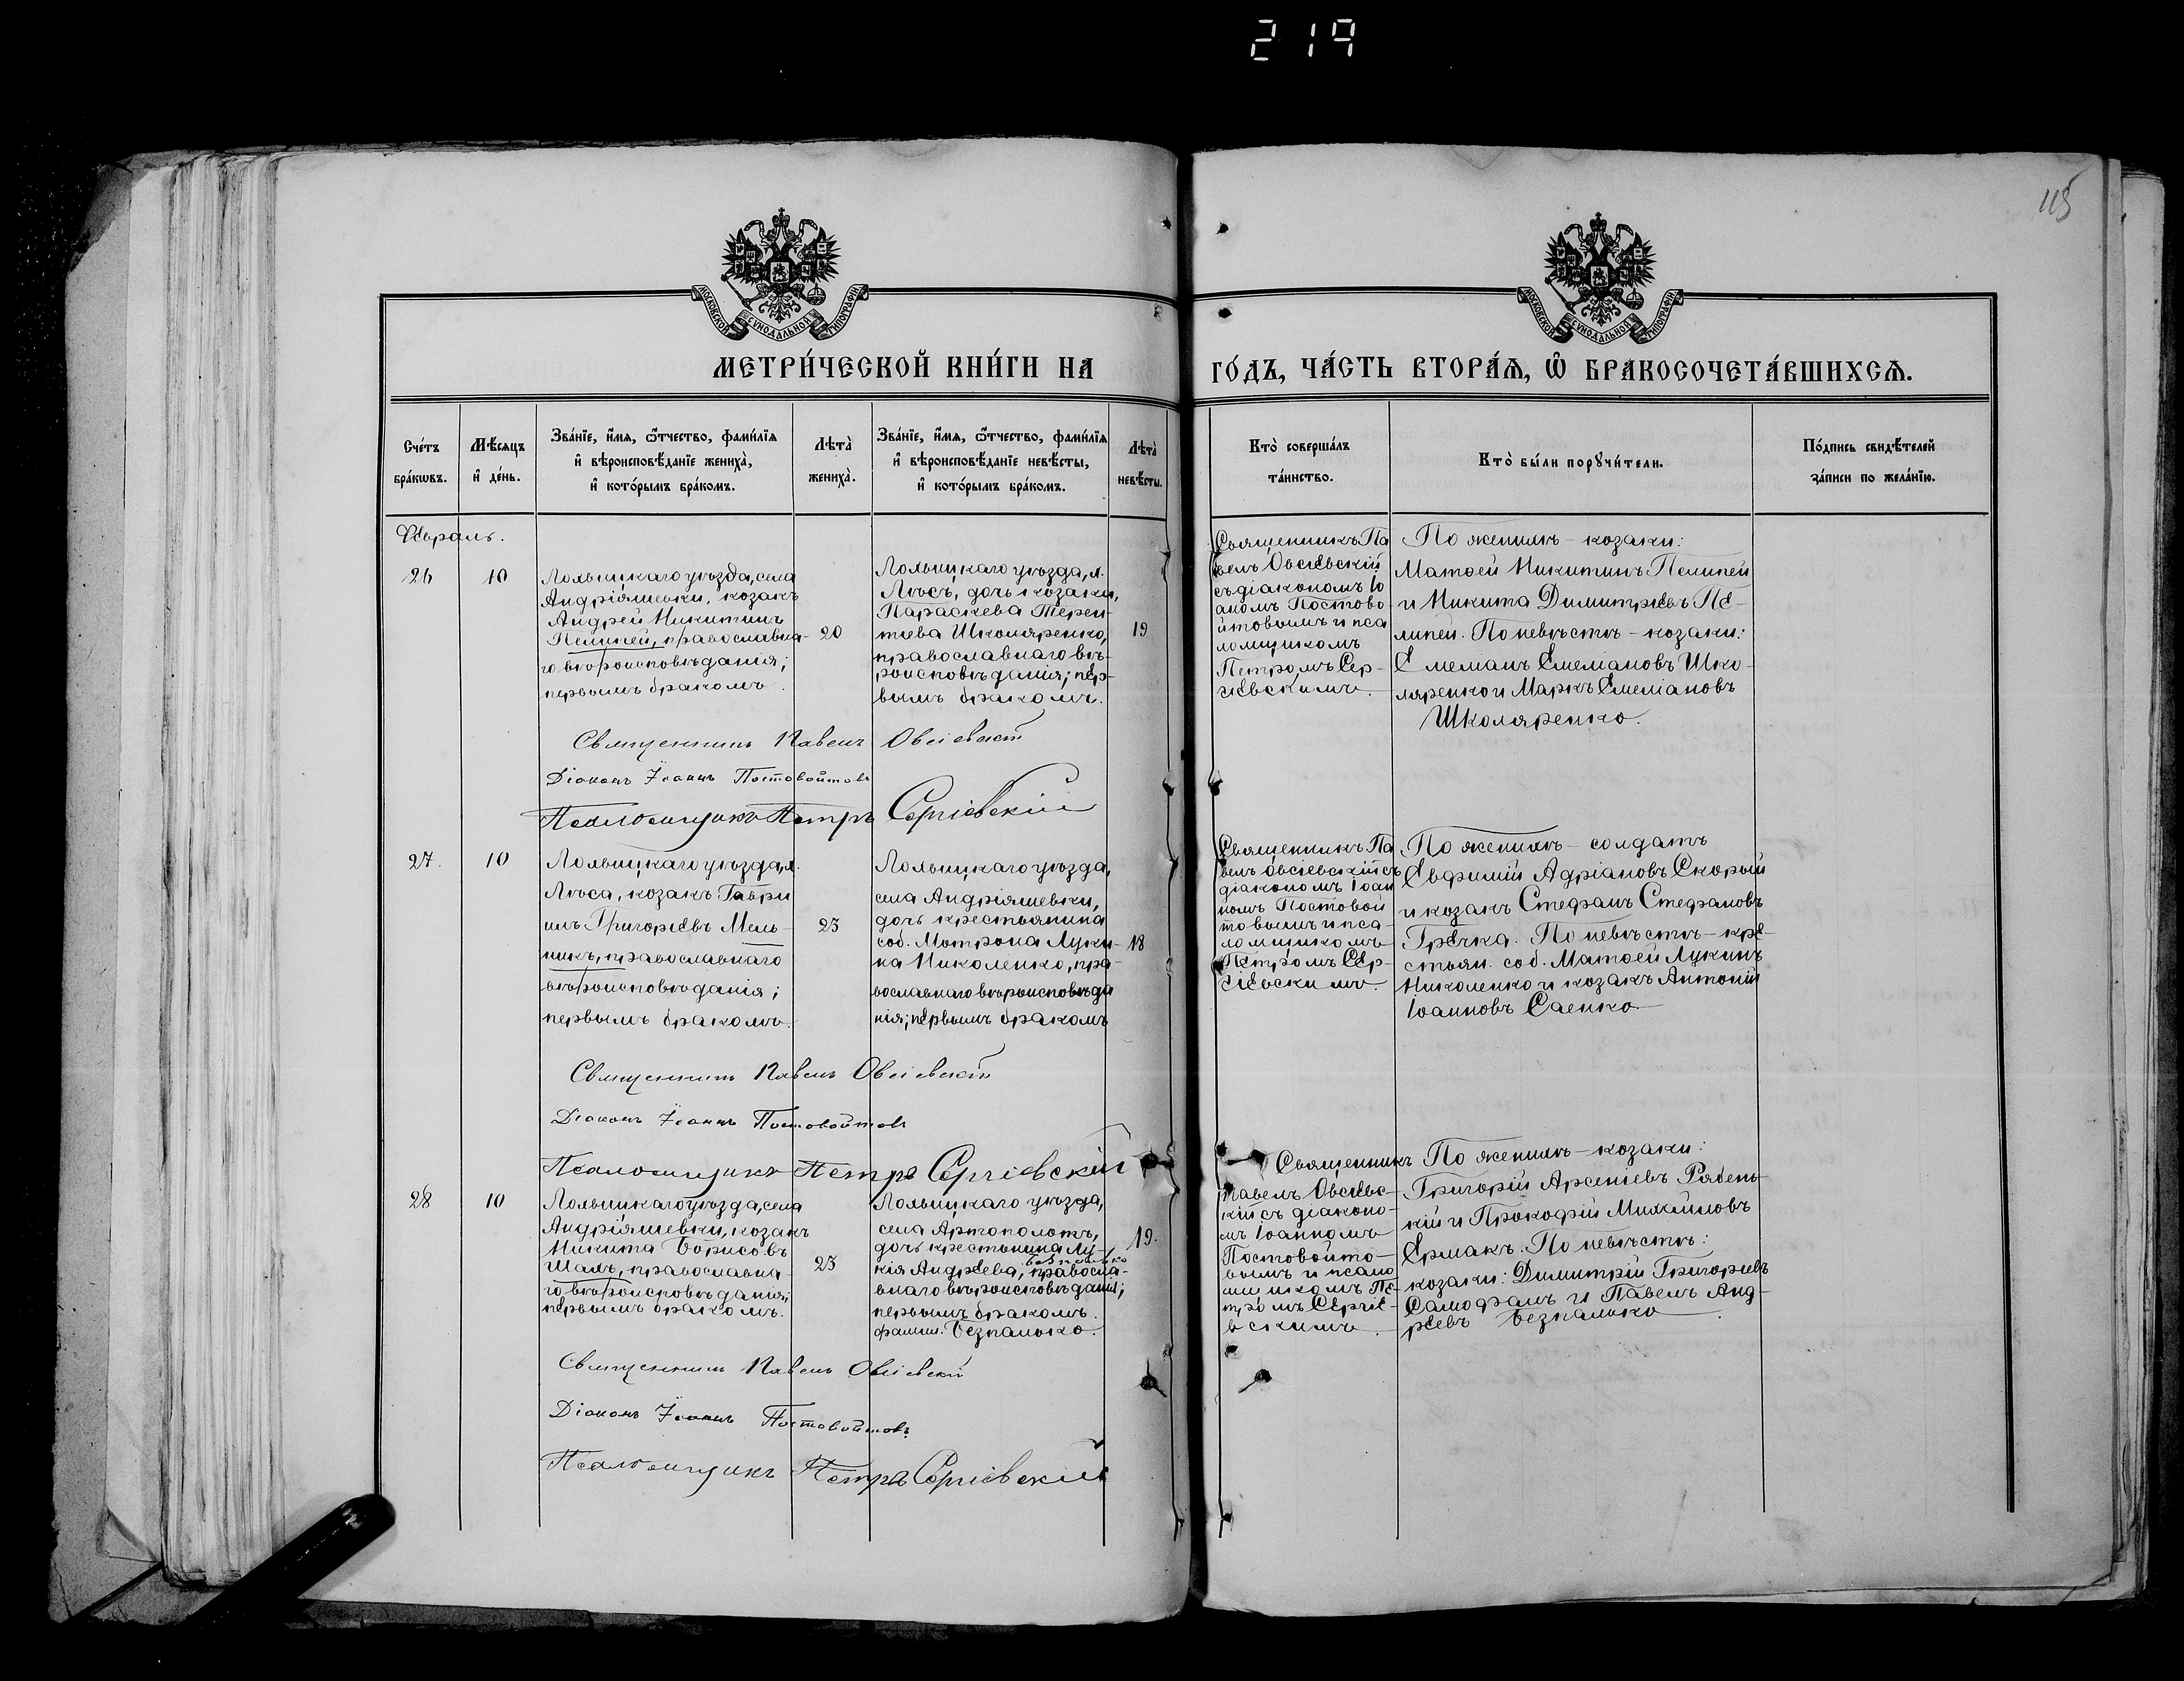 219
115
МОСКОВСКОЙ СѴНОДАЛЬНОЙ ТИПОГРАФІИ
МОСКОВСКОЙ СѴНОДАЛЬНОЙ ТИПОГРАФІИ
МЕТРИ́ЧЕСКОЙ КНИ́ГИ НА
ГО́ДЪ, ЧА́СТЬ ВТОРА́Ѧ, Ѽ БРАКОСОЧЕТА́ВШИХСѦ.
Сче́тъ
бра́кѡвъ.
Мѣ́сяцъ
и҆ де́нь.
Зва́нїе, и҆́мѧ, ѻ҆́тчество, фами́лїѧ
и҆ вѣроисповѣ́данїе жениха̀,
и҆ кото́рымъ бра́комъ.
Лѣта̀
жениха̀.
Зва́нїе, и҆́мѧ, ѻ҆́тчество, фами́лїѧ
и҆ вѣроисповѣ́данїе невѣ́сты,
и҆ кото́рымъ бра́комъ.
Лѣта̀
невѣ́сты.
Кто̀ соверша́лъ
та́инство.
Кто̀ бы́ли порꙋчи́тели.
По́дпись свидѣ́телей
за́писи по жела́нїю.
Февраль.
26
10
Лохвицкаго уѣзда, села
Андріяшевки, козакъ
Андрей Никитинъ
Пелипей, православна-
го вѣроисповѣданія;
первымъ бракомъ.
20
Лохвицкаго уѣзда, м.
Лѣсъ, дочь козака,
Параскева Терен-
тіева Школяренко,
православнаго вѣ-
роисповѣданія; пер-
вымъ бракомъ.
19
Священникъ Па
велъ Овсіевскій
съ діакономъ Іо
аномъ Постово-
йтовымъ и пса
ломщикомъ
Петромъ Сер-
гіевскимъ.
По женихѣ – козаки:
Матѳей Никитинъ Пелипей
и Никита Димитріевъ Пе-
липей. По невѣстѣ – козаки:
Емеліанъ Емеліановъ Шко-
ляренко и Маркъ Емеліановъ
Школяренко.
Священникъ Павелъ Овсіевскій
Діаконъ Іоаннъ Постовойтовъ
Псаломщикъ Петръ Сергіевскій
27.
10
Лохвицкаго уѣзда, м.
Лѣса, козакъ Гаври
илъ Григоріевъ Мель-
никъ, православнаго
вѣроисповѣданія;
первымъ бракомъ.
23
Лохвицкаго уѣзда,
села Андріяшевки,
дочь крестьянина
соб. Мотрона Луки-
на Николенко, пра-
вославнаго вѣроисповѣда
нія; первымъ бракомъ
18
Священникъ Па
велъ Овсіевскій съ
діакономъ Іоан
номъ Постовой
товымъ и пса-
ломщикомъ
Петромъ Сер-
гіевскимъ.
По женихѣ – солдатъ
Евфимій Адріановъ Скорый
и козакъ Стефанъ Стефановъ
Гречка. По невѣстѣ – кре-
стьян. соб. Матѳей Лукинъ
Николенко и козакъ Антоній
Іоанновъ Саенко.
Священникъ Павелъ Овсіевскій
Діаконъ Іоаннъ Постовойтовъ
Псаломщикъ Петръ Сергіевскій
28
10
Лохвицкаго уѣзда, села
Андріяшевки, козакъ
Никита Борисовъ
Шаль, православна-
го вѣроисповѣданія;
первымъ бракомъ.
23
Лохвицкаго уѣзда,
села Артополотъ,
дочь крестьянина Лу-
Безпалько
кія Андреева, правосла-
внаго вѣроисповѣданія;
первымъ бракомъ.
фамил. Безпалько.
19.
Священникъ
Павелъ Овсіевс-
кій съ діаконо-
мъ Іоанномъ
Постовойто-
вымъ и псало
мщикомъ Пе-
тромъ Сергіе-
вскимъ.
По женихѣ – козаки:
Григорій Арсеніевъ Рябень-
кій и Прокофій Михайловъ
Ермакъ. По невѣстѣ:
козаки: Димитрій Григоріевъ
Самофалъ и Павелъ Анд-
реевъ Безпалько.
Священникъ Павелъ Овсіевскій
Діаконъ Іоаннъ Постовойтовъ
Псаломщикъ Петръ Сергіевскій